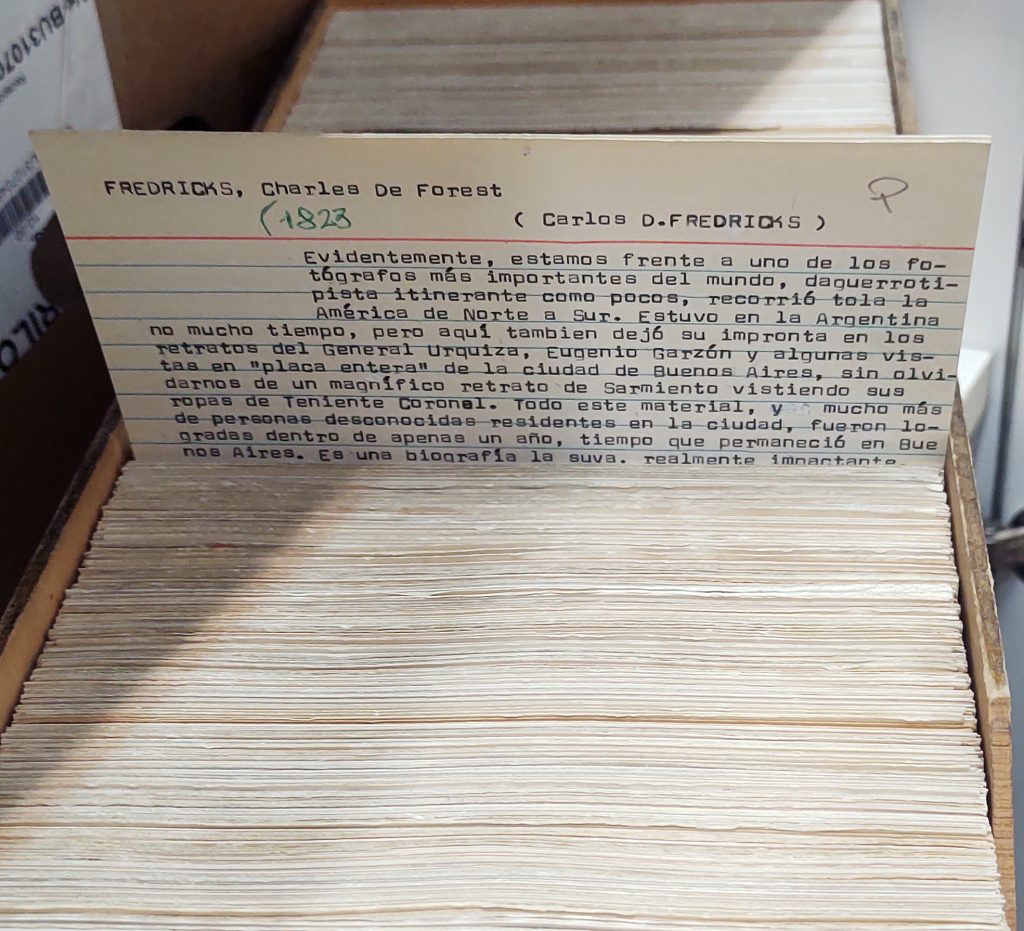 FREDRICKS, Charles De Forest
(1823
( Carlos D.FREDRICKS )
Evidentemente, estamos frente a uno de los fo-
tógrafos más importantes del mundo, daguerroti-
pista itinerante como pocos, recorrió tola la
América de Norte a Sur. Estuvo en la Argentina
no mucho tiempo, pero aquí tambien dejó su impronta en los
retratos del General Urquiza, Eugenio Garzón y algunas vis-
tas en "placa entera" de la ciudad de Buenos Aires, sin olvi-
darnos de un magnífico retrato de Sarmiento vistiendo sus
ropas de Teniente Coronel. Todo este material, y mucho más
de personas desconocidas residentes en la ciudad, fueron lo-
gradas dentro de apenas un año, tiempo que permaneció en Bue
nos Aires. Es una biografía la suya. realmente impactante.